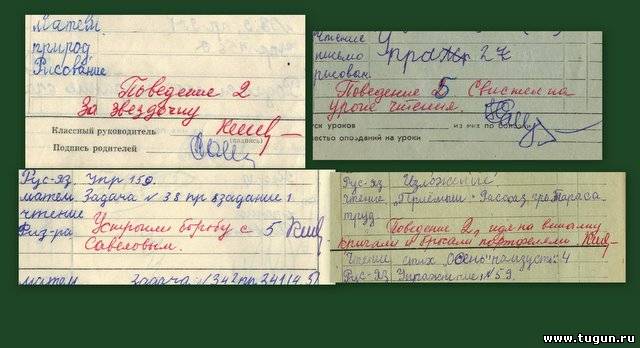 матем.
природ
Рисование
Поведение 2
За звездочку
Классный руководитель
(подпись)
Подпись родителей
Чтение
письмо упраж 27
рисован.
Поведение 5 Свистел на
уроке чтения.
уроков из них по болезни
чество опозданий на уроки
Рус-яз. Упр 150.
матем Задача № 38 пр взадание 1
чтение
Физ-ра
Устроили борьбу с 5
Савеловым.
матем задача № 342 пр 341
Рус-яз Изложение
чтение
труд
Поведение 2, идя на
кричали и портфелями
Чтение стих „Осень" наизусть 4
Рус-яз Упражнение № 59.
www.tugun.ru